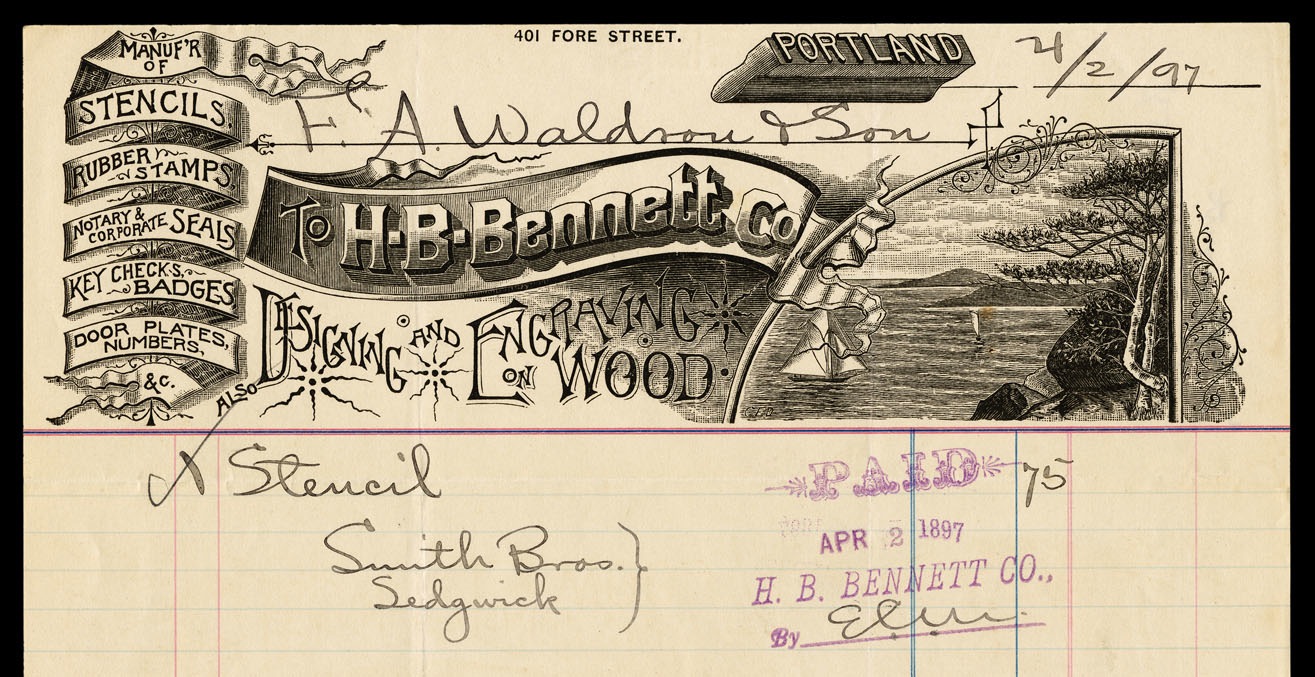 401 FORE STREET.
PORTLAND 4/2/97
F. A. Waldron & Son
MANUF'R
OF
STENCILS,
RUBBER
STAMPS,
NOTARY &
CORPORATE SEALS
KEY CHECKS,
BADGES
DOOR PLATES,
NUMBERS,
&C.
ALSO
TO H-B-Bennett Co
DESIGNING AND ENGRAVING
ON WOOD.
1 Stencil 75
Smith Bros. }
Sedgwick
PAID
APR 2 1897
H. B. BENNETT CO.,
By